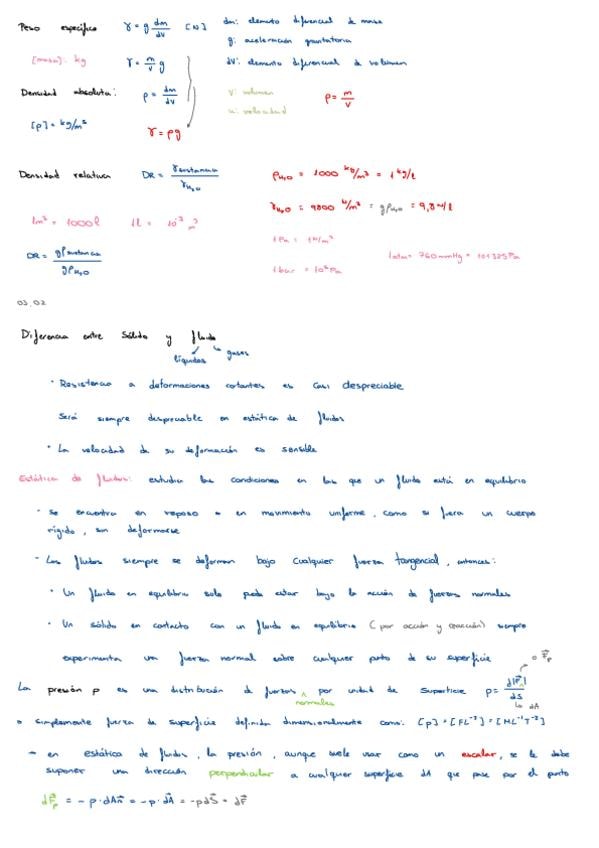 Peso específico γ = g dm/dV [N] dm: elemento diferencial de masa
g: aceleración gravitatoria
[masa]: kg γ = m/v g dV: elemento diferencial de volumen
Densidad absoluta: ρ = dm/dV v: volumen ρ = m/v
u: velocidad
[ρ] = kg/m³ γ = ρg
Densidad relativa DR = γsustancia/γH₂O ρH₂O = 1000 kg/m³ = 1 kg/l
γH₂O = 9800 N/m³ = gρH₂O = 9,8 N/l
1m³ = 1000 l 1l = 10⁻³ m³
1 Pa = 1N/m²
DR = gρsustancia/gρH₂O 1atm = 760 mmHg = 101325 Pa
1 bar = 10⁵ Pa
03.02
Diferencia entre Sólido y fluido
líquidos gases
· Resistencia a deformaciones cortantes es casi despreciable
Será siempre despreciable en estática de fluidos
· La velocidad de su deformación es sensible
Estática de fluidos: estudia las condiciones en las que un fluido está en equilibrio
· Se encuentra en reposo o en movimiento uniforme, como si fuera un cuerpo
rígido, sin deformarse
· Los fluidos siempre se deforman bajo cualquier fuerza tangencial, entonces:
· Un fluido en equilibrio solo puede estar bajo la acción de fuerzas normales
· Un sólido en contacto con un fluido en equilibrio (por acción y reacción) siempre
experimenta una fuerza normal sobre cualquier punto de su superficie
La presión p es una distribución de fuerzas normales por unidad de superficie p = d|F|/dS
o F⃗p
↳ dA
o simplemente fuerza de superficie definida dimensionalmente como: [p] = [FL⁻²] = [ML⁻¹T⁻²]
→ en estática de fluidos, la presión, aunque suele usar como un escalar, se le debe
suponer una dirección perpendicular a cualquier superficie dA que pase por el punto
dF⃗p = -p·dAn⃗ = -p·dA⃗ = -pdS⃗ = dF⃗